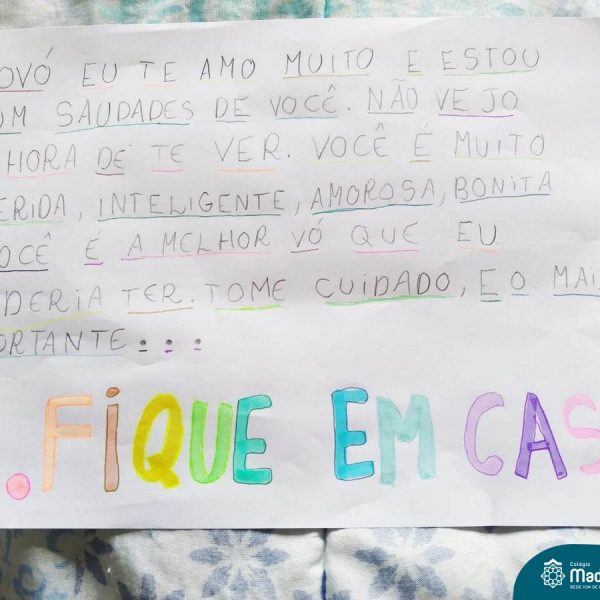 OVÓ EU TE AMO MUITO E ESTOU
OM SAUDADES DE VOCÊ. NÃO VEJO
HORA DE TE VER. VOCÊ É MUITO
ERIDA, INTELIGENTE, AMOROSA, BONITA
OCÊ É A MELHOR VÓ QUE EU
DERIA TER. TOME CUIDADO, E O MAIS
ORTANTE...
..FIQUE EM CAS
Colégio
Mad